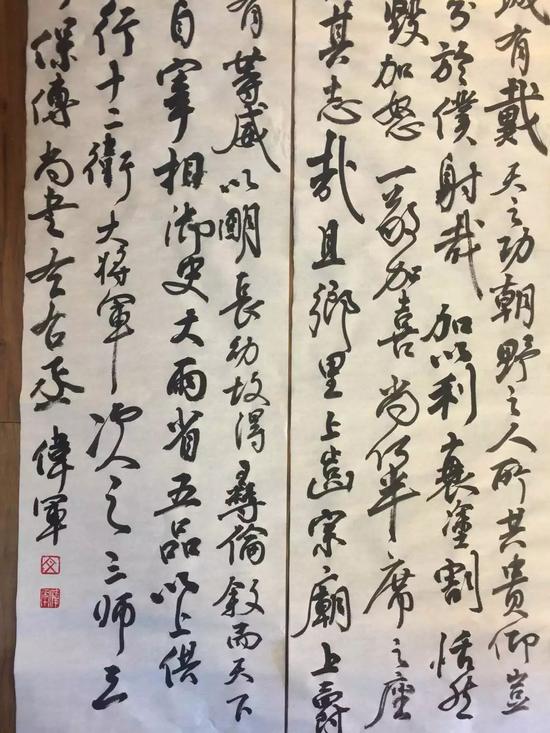 有戴天之功朝野之人所其貴仰豈
於僕射哉加以利衰塗割恬然
毀加怒一敬加喜尚何半席之座
其志哉且鄉里上齒宗廟上爵
有等威以明長幼故得彝倫敘而天下
自宰相御史大兩省五品以上供
行十二衛大將軍次之三师三
保傅尚書左右丞 偉軍